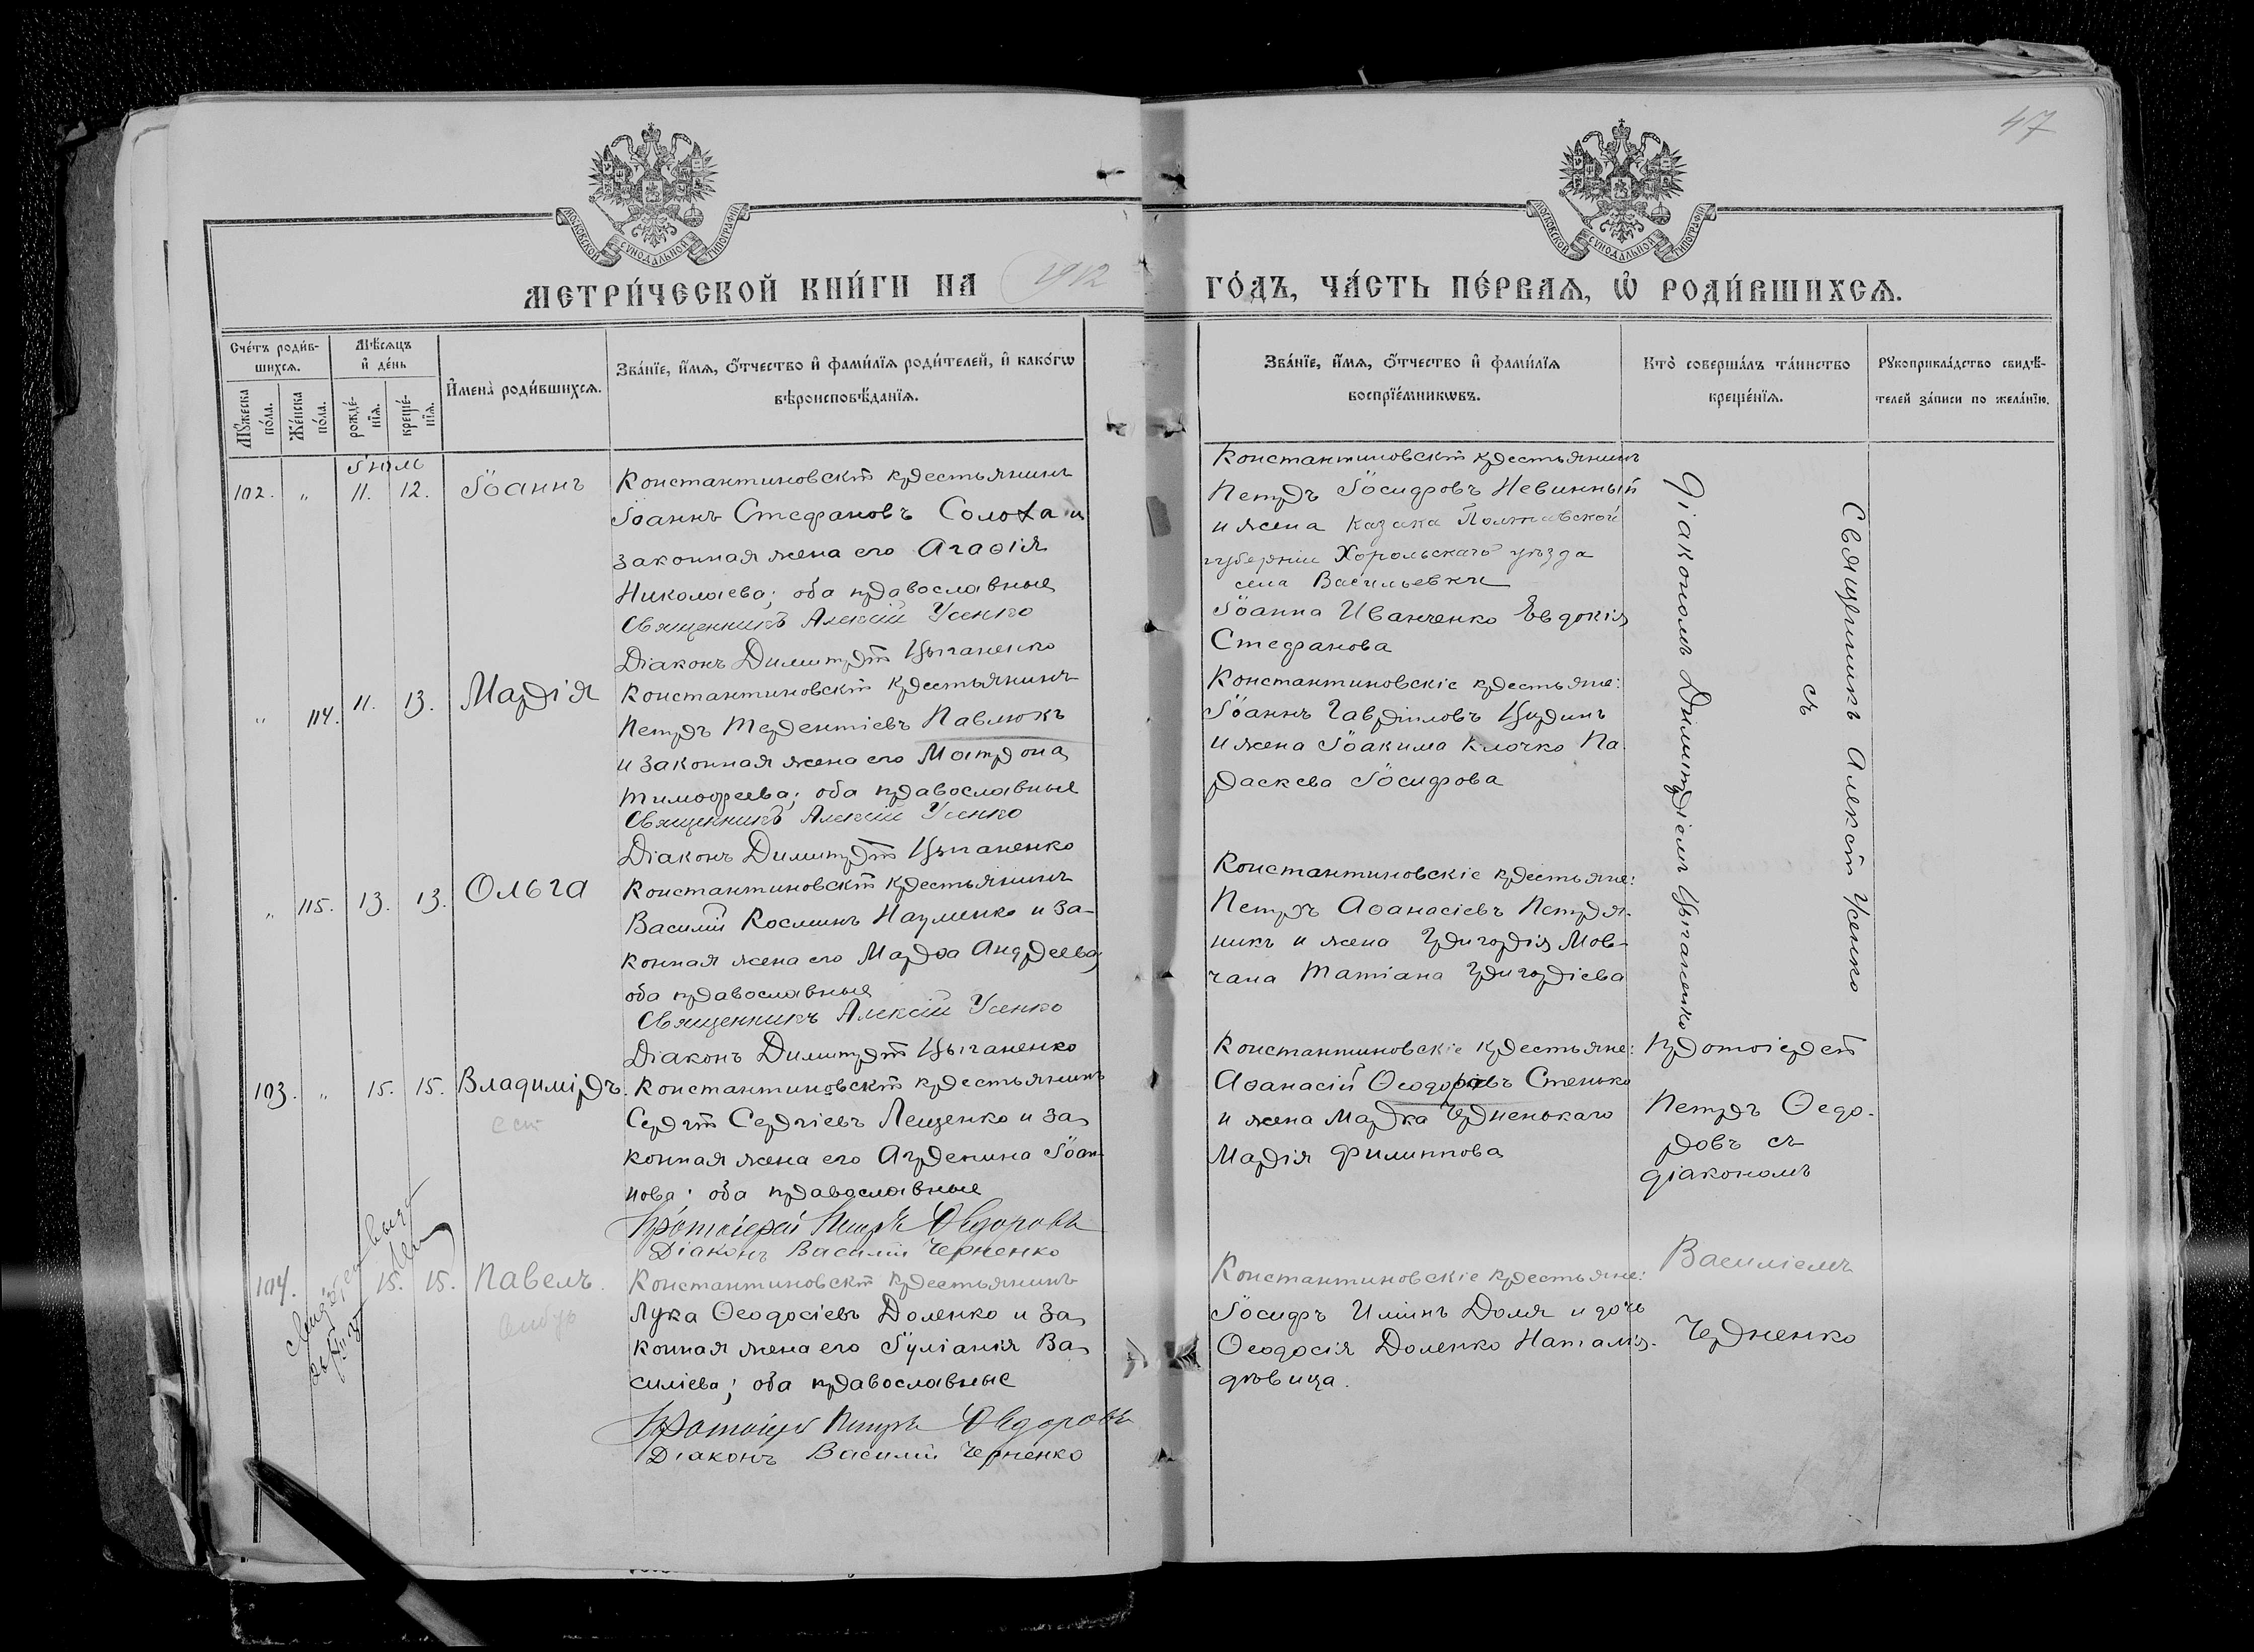 47
МОСКОВСКОЙ СУНОДАЛЬНОЙ ТИПОГРАФІИ
МОСКОВСКОЙ СУНОДАЛЬНОЙ ТИПОГРАФІИ
МЕТРИ́ЧЕСКОЙ КНИ́ГИ НА 1912
ГО́ДЪ, ЧА́СТЬ ПЕ́РВАѦ, Ѡ҆ РОДИ́ВШИХСѦ.
Сче́тъ роди́в-
шихсѧ.
Мꙋ́жеска
по́ла.
Же́нска
по́ла.
Мѣ́сѧцъ
и҆ де́нь
рожде́-
нїѧ.
креще́-
нїѧ.
И҆мена̀ роди́вшихсѧ.
Зва́нїе, и҆́мѧ, ѻ҆́тчество и҆ фами́лїѧ роди́телей, и҆ како́гѡ
вѣроисповѣ́данїѧ.
Зва́нїе, и҆́мѧ, ѻ҆́тчество и҆ фами́лїѧ
воспрїе́мникѡвъ.
Кто̀ соверша́лъ та́инство
креще́нїѧ.
Рꙋкоприкла́дство свидѣ́-
телей за́писи по жела́нїю.
Іюль
102. „ 11. 12. Іоаннъ
Константиновскій крестьянинъ
Іоаннъ Стефановъ Солоха и
законная жена его Агаѳія
Николаева; оба православные
Священникъ Алексій Усенко
Діаконъ Димитрій Цыганенко
Константиновскій крестьянинъ
Петръ Іосифовъ Невинный
и жена казака Полтавской
губерніи Хорольскаго уѣзда
села Васильевки
Іоанна Иванченко Евдокія
Стефанова
Священникъ Алексій Усенко
съ
діакономъ Димитріемъ Цыганенко
„ 114. 11. 13. Марія
Константиновскій крестьянинъ
Петръ Терентіевъ Павлюкъ
и законная жена его Матрона
Тимофеева; оба православные
Священникъ Алексій Усенко
Діаконъ Димитрій Цыганенко
Константиновскіе крестьяне:
Іоаннъ Гавріиловъ Цидинъ
и жена Іоакима Клочко Па-
раскева Іосифова
„ 115. 13. 13. Ольга
Константиновскій крестьянинъ
Василій Косминъ Науменко и за-
конная жена его Марѳа Андреева;
оба православные
Священникъ Алексій Усенко
Діаконъ Димитрій Цыганенко
Константиновскіе крестьяне:
Петръ Аѳанасіевъ Петря-
никъ и жена Григорія Мов-
чана Татіана Григоріева
103. „ 15. 15. Владиміръ.
Константиновскій крестьянинъ
Сергій Сергіевъ Лещенко и за-
конная жена его Агрепина Іоан-
нова; оба православные
Протоіерей Петръ Ѳедоровъ
Діаконъ Василій Черненко
Константиновскіе крестьяне:
Аѳанасій Ѳеодоровъ Стенько
и жена Марка Черненькаго
Марія Филиппова
Протоіерей
Петръ Ѳедо-
ровъ съ
діакономъ
Василіемъ
Черненко
104. 15. 15. Павелъ.
Константиновскій крестьянинъ
Лука Ѳеодосіевъ Доленко и за-
конная жена его Іуліанія Ва-
силіева; оба православные
Протоіерей Петръ Ѳедоровъ
Діаконъ Василій Черненко
Константиновскіе крестьяне:
Іосифъ Илiинъ Доля и дочь
Ѳеодосія Доленко Наталія-
дѣвица.